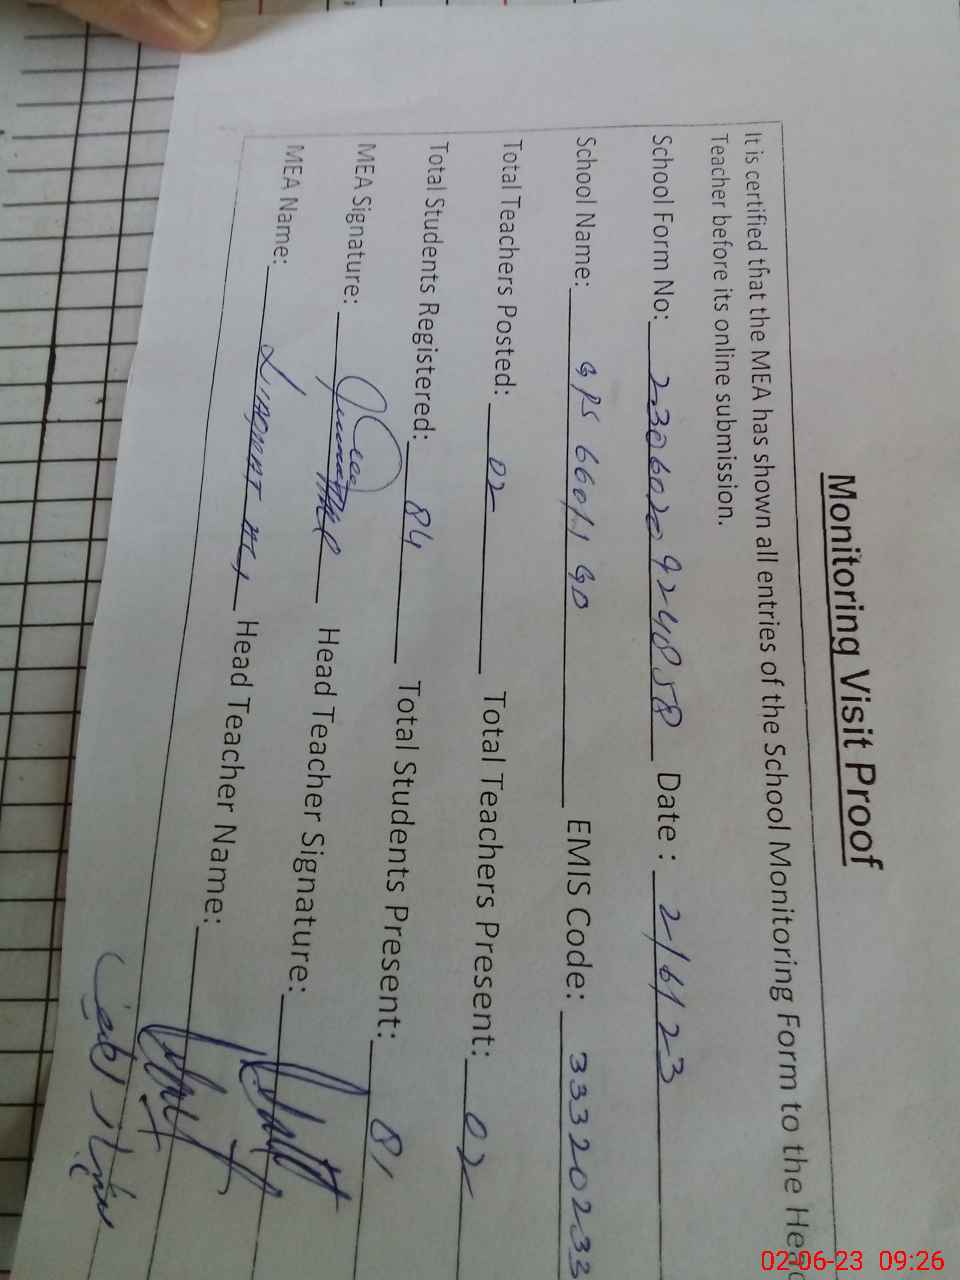 Monitoring Visit Proof
It is certified that the MEA has shown all entries of the School Monitoring Form to the Head
Teacher before its online submission.
School Form No: 23060209240858 Date : 2/6/23
School Name: GPS 660/1 GD EMIS Code: 33320233
Total Teachers Posted: 02 Total Teachers Present: 02
Total Students Registered: 84 Total Students Present: 81
MEA Signature: Head Teacher Signature:
MEA Name: LIAQAT ALI Head Teacher Name:
02-06-23 09:26